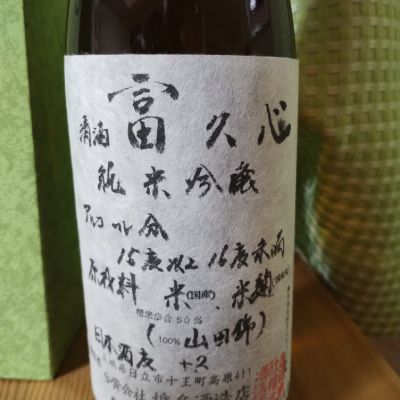 清酒 富久心
純米吟醸
アルコール分
15度以上16度未満
原材料 米(国産)、米麹
精米歩合50%
(100% 山田錦)
日本酒度 +2
茨城県日立市十王町高原411
合資会社 椎名酒造店